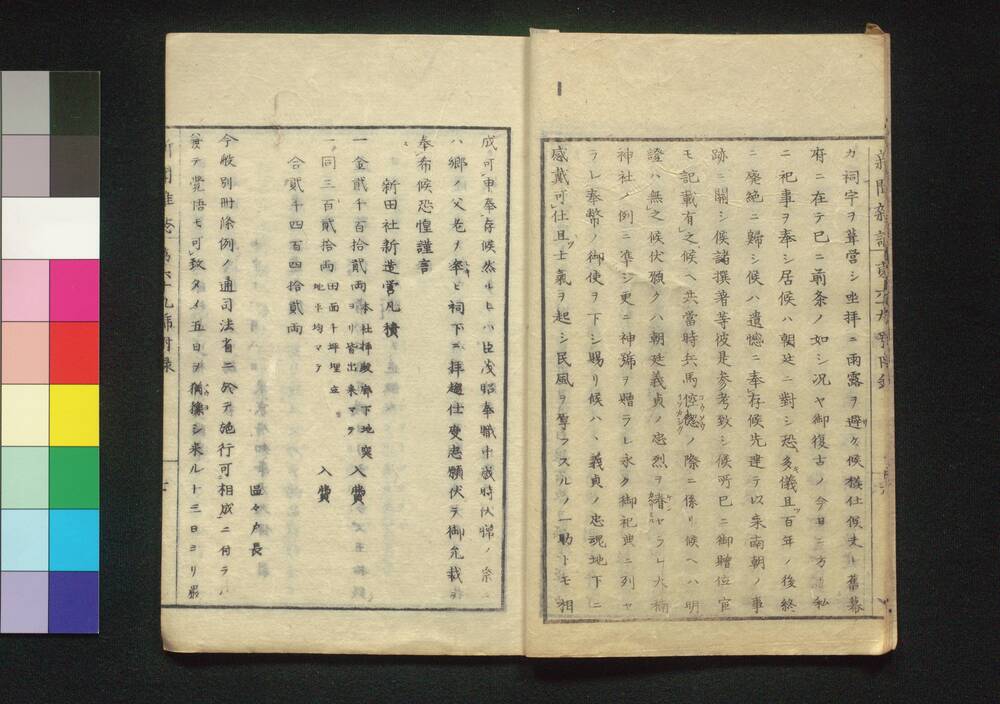 カ祠宇ヲ葺営シ坐拝ニ雨露ヲ避ケ候様仕候丈ト舊幕
府ニ在テ已ニ前条ノ如シ况ヤ御復古ノ今日ニ方リ私
ニ祀事ヲ奉シ居候ハ朝廷ニ對シ恐多儀且百年ノ後終
ニ廃絶ニ歸シ候ハ遺憾ニ奉存候先達テ以来南朝ノ事
跡ニ關シ候諸撰著等彼是参考致シ候所已ニ御贈位官
モ記載有之候ヘ共當時兵馬倥偬ノ際ニ係リ候ヘハ明
證ハ無之候伏願クハ朝廷義貞ノ忠烈ヲ ヤラレ大楠
神社ノ例ニ準シ更ニ神號ヲ贈ラレ永ク御祀典ニ列セ
ラレ奉幣ノ御使ヲ下シ賜リ候ハヽ義貞ノ忠魂地下ニ
感戴可仕且士氣ヲ起シ民風ヲ厚フスルノ一助トモ相
成可申奉存候然ル上ハ臣 昭奉職中歳時伏臘ノ祭ニ
ハ郷ノ父老ヲ率ヒ祠下ニ拝趨仕度志願伏テ御允裁ヲ
奉布候恐惶謹言
新田社新造営凡積
一金貳千百拾貳両 本社拝殿廊下地突ヨリ皆出来マテ 入費
一同三百貳拾両 田面千坪埋立地平均マテ 入費
合貳千四百四拾貳両
區々戸長
今般別冊條例ノ通司法省ニ於テ施行可相成ニ付ラハ
テ覺悟モ可致タメ五日ヲ猶豫シ来ル十三日ヨリ嚴